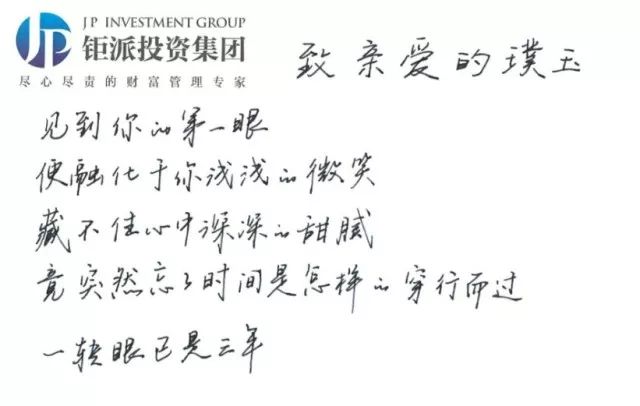 JP INVESTMENT GROUP
钜派投资集团
尽心尽责的财富管理专家
致亲爱的璞玉
见到你的第一眼
便融化于你浅浅的微笑
藏不住心中深深的甜腻
竟突然忘了时间是怎样的穿行而过
一转眼已是三年